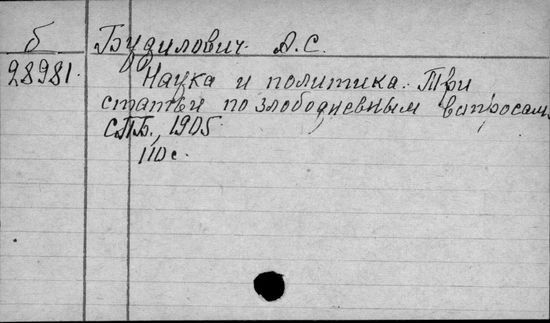 б Будилович А.С.
28981. Наука и политика. Три
статьи по злободневным вопросам.
СПБ., 1905.
110 с.